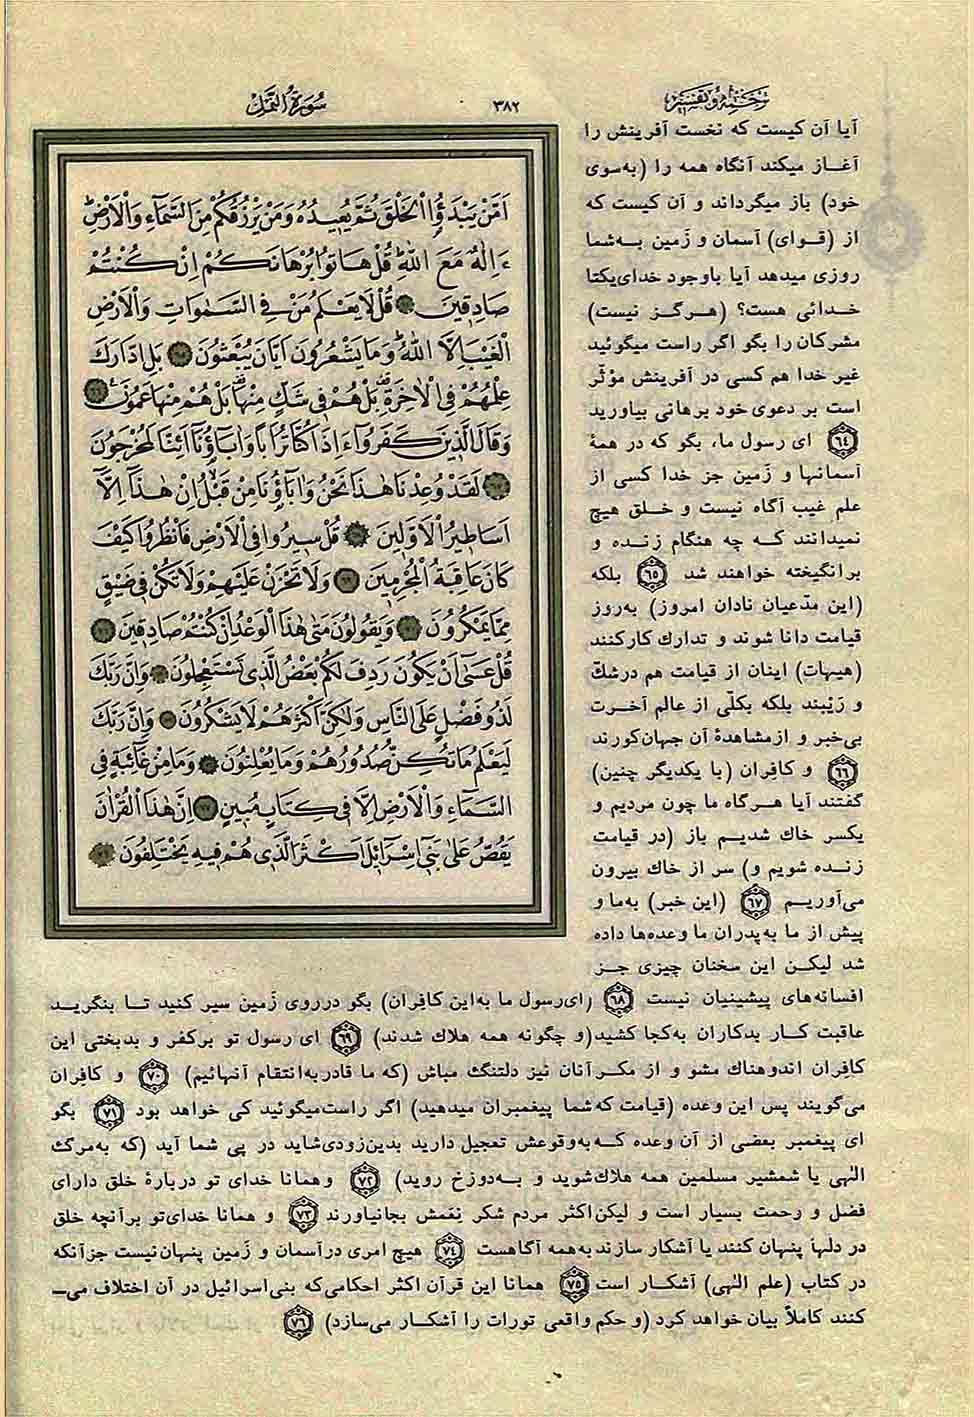 ترجمه و تفسیر
۳۸۲
سورة النمل
آیا آن کیست که نخست آفرینش را
آغاز میکند آنگاه همه را (به‌سوی
خود) باز میگرداند و آن کیست که
از (قوای) آسمان و زَمین به‌شما
روزی میدهد آیا باوجود خدای‌یکتا
خدائی هست؟ (هرگز نیست)
مشرکان را بگو اگر راست میگوئید
غیر خدا هم کسی در آفرینش مؤثّر
است بر دعوی خود برهانی بیاورید
﴿٦٤﴾ ای رسول ما، بگو که در همهٔ
آسمانها و زَمین جز خدا کسی از
علم غیب آگاه نیست و خلق هیچ
نمیدانند که چه هنگام زنده و
برانگیخته خواهند شد ﴿٦٥﴾ بلکه
(این مدّعیان نادان امروز) به‌روز
قیامت دانا شوند و تدارك کارکنند
(هیهات) اینان از قیامت هم درشكّ
و رَیْبند بلکه بکلّی از عالم آخرت
بی‌خبر و ازمشاهدهٔ آن جهان‌کورند
﴿٦٦﴾ و کافِران (با یکدیگر چنین)
گفتند آیا هرگاه ما چون مردیم و
یکسر خاك شدیم باز (در قیامت
زنده شویم و) سر از خاك بیرون
می‌آوریم ﴿٦٧﴾ (این خبر) به‌ما و
پیش از ما به‌پدران ما وعده‌ها داده
شد لیکن این سخنان چیزی جز
افسانه‌های پیشینیان نیست ﴿٦٨﴾ (ای‌رسول ما به‌این کافِران) بگو درروی زَمین سیر کنید تا بنگرید
عاقبت کار بدکاران به‌کجا کشید(و چگونه همه هلاك شدند) ﴿٦٩﴾ ای رسول تو برکفر و بدبختی این
کافِران اندوهناك مشو و از مکرآنان نیز دلتنگ مباش (که ما قادربه‌انتقام آنهائیم) ﴿٧٠﴾ و کافِران
می‌گویند پس این وعده (قیامت که‌شما پیغمبران میدهید) اگر راست‌میگوئید کی خواهد بود ﴿٧١﴾ بگو
ای پیغمبر بعضی از آن وعده که‌به‌وقوعش تعجیل دارید بدین‌زودی‌شاید در پی شما آید (که به‌مرگ
الهی یا شمشیر مسلمین همه هلاك‌شوید و به‌دوزخ روید) ﴿٧٢﴾ وهمانا خدای تو دربارهٔ خلق دارای
فضل و رحمت بسیار است و لیکن‌اکثر مردم شکر نِعَمش بجانیاورند ﴿٧٣﴾ و همانا خدای‌تو برآنچه خلق
در دلها پنهان کنند یا آشکار سازند به‌همه آگاهست ﴿٧٤﴾ هیچ امری درآسمان و زَمین پنهان‌نیست جزآنکه
در کتاب (علم الهی) آشکار است ﴿٧٥﴾ همانا این قرآن اکثر احکامی‌که بنی‌اسرائیل در آن اختلاف می‌ـ
کنند کاملاً بیان خواهد کرد (و حکم واقعی تورات را آشکار می‌سازد) ﴿٧٦﴾
اَمَّنْ يَبْدَؤُا الْخَلْقَ ثُمَّ يُعِيدُهُ وَمَنْ يَرْزُقُكُمْ مِنَ السَّمَاءِ وَالْاَرْضِ
ءَاِلٰهٌ مَعَ اللّٰهِ قُلْ هَاتُوا بُرْهَانَكُمْ اِنْ كُنْتُمْ
صَادِقِينَ قُلْ لَا يَعْلَمُ مَنْ فِي السَّمٰوَاتِ وَالْاَرْضِ
الْغَيْبَ اِلَّا اللّٰهُ وَمَا يَشْعُرُونَ اَيَّانَ يُبْعَثُونَ بَلِ ادَّارَكَ
عِلْمُهُمْ فِي الْاٰخِرَةِ بَلْ هُمْ فِي شَكٍّ مِنْهَا بَلْ هُمْ مِنْهَا عَمُونَ
وَقَالَ الَّذِينَ كَفَرُوا ءَاِذَا كُنَّا تُرَابًا وَاٰبَاؤُنَا اَئِنَّا لَمُخْرَجُونَ
لَقَدْ وُعِدْنَا هٰذَا نَحْنُ وَاٰبَاؤُنَا مِنْ قَبْلُ اِنْ هٰذَا اِلَّا
اَسَاطِيرُ الْاَوَّلِينَ قُلْ سِيرُوا فِي الْاَرْضِ فَانْظُرُوا كَيْفَ
كَانَ عَاقِبَةُ الْمُجْرِمِينَ وَلَا تَحْزَنْ عَلَيْهِمْ وَلَا تَكُنْ فِي ضَيْقٍ
مِمَّا يَمْكُرُونَ وَيَقُولُونَ مَتٰى هٰذَا الْوَعْدُ اِنْ كُنْتُمْ صَادِقِينَ
قُلْ عَسٰى اَنْ يَكُونَ رَدِفَ لَكُمْ بَعْضُ الَّذِي تَسْتَعْجِلُونَ وَاِنَّ رَبَّكَ
لَذُو فَضْلٍ عَلَى النَّاسِ وَلٰكِنَّ اَكْثَرَهُمْ لَا يَشْكُرُونَ وَاِنَّ رَبَّكَ
لَيَعْلَمُ مَا تُكِنُّ صُدُورُهُمْ وَمَا يُعْلِنُونَ وَمَا مِنْ غَائِبَةٍ فِي
السَّمَاءِ وَالْاَرْضِ اِلَّا فِي كِتَابٍ مُبِينٍ اِنَّ هٰذَا الْقُرْاٰنَ
يَقُصُّ عَلٰى بَنِي اِسْرَائِلَ اَكْثَرَ الَّذِي هُمْ فِيهِ يَخْتَلِفُونَ